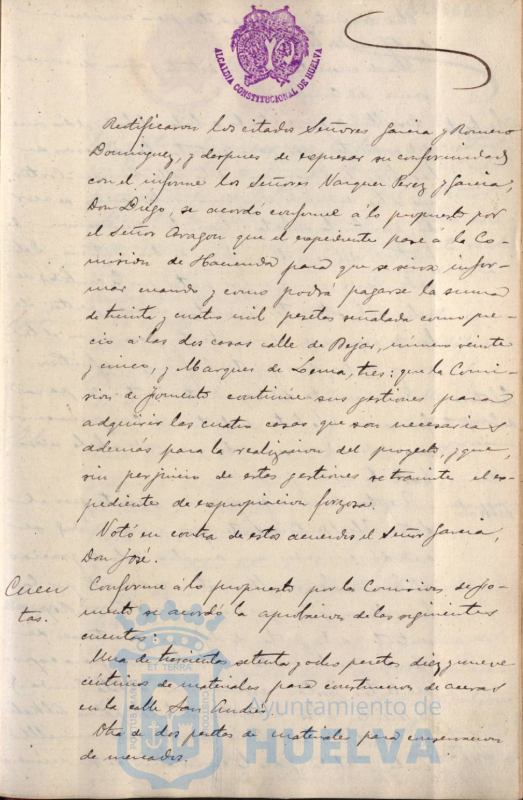 ALCALDIA CONSTITUCIONAL DE HUELVA
Rectificaron los citados Señores Garcia y Romero
Dominguez, y despues de expresar su conformidad
con el informe los Señores Vazquez Perez y Garcia,
Don Diego, se acordó conforme á lo propuesto por
el Señor Aragon que el expediente pase á la Co-
mision de Hacienda para que se sirva infor-
mar cuando y como podrá pagarse la suma
de treinta y cuatro mil pesetas señalada como pre-
cio á las dos casas calle de Bejar, número veinte
y cinco, y Marques de Lema, tres: que la Comi-
sion de fomento continúe sus gestiones para
adquirir las cuatro casas que son necesarias
además para la realizacion del proyecto, y que,
sin perjuicio de estas gestiones se tramite el ex-
pediente de expropiacion forzosa.
Votó en contra de estos acuerdos el Señor Garcia,
Don José.
Cuen
tas.
Conforme á lo propuesto por la Comision de fo-
mento se acordó la aprobacion de las siguientes
cuentas:
Una de trescientas setenta y ocho pesetas diez y nueve
centimos de materiales para construccion de aceras
en la calle San Andrés.
Otra de dos pesetas de materiales para conservacion
de mercados.
PORTUS MARIS ET TERRAE CUSTODIA
Ayuntamiento de
HUELVA